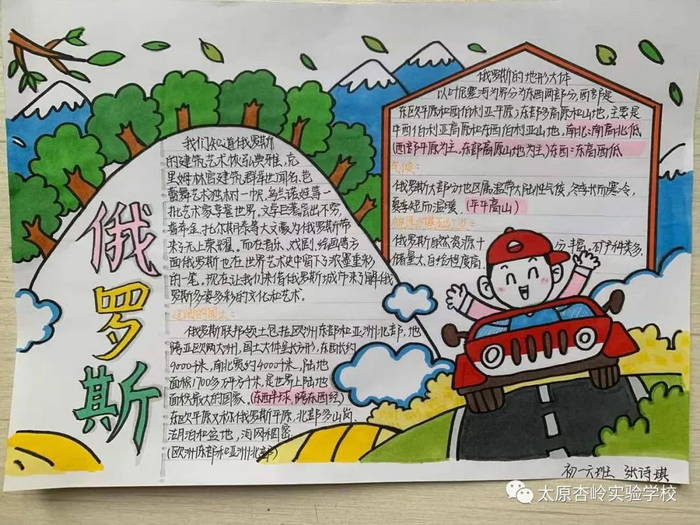 俄罗斯
我们知道俄罗斯
的建筑艺术恢弘典雅,克
里姆林宫建筑群举世闻名,芭
蕾舞艺术独树一帜,乌兰诺娃等一
批艺术家享誉世界,文学巨著层出不穷,
普希金、托尔斯泰等大文豪为俄罗斯带
来了无上荣耀,而在音乐、戏剧、绘画等方
面俄罗斯也在世界艺术史中留下了浓墨重彩
的一笔,现在让我们来借俄罗斯城市来了解俄
罗斯多姿多彩的文化和艺术。
辽阔的国土:
俄罗斯联邦领土包括欧洲东部和亚洲北部,地
跨亚欧两大洲,国土大体呈长方形,东西长约
9000千米,南北宽约4000千米,陆地
面积1700多万平方千米,是世界上陆地
面积最大的国家,(东西半球,跨东西经)
东欧平原又称俄罗斯平原,北部多山岗
沼泊和盆地,河网稠密
(欧洲东部和亚洲北部)
俄罗斯的地形大体
以叶尼塞河为界分为东西两部分,西部是
东欧平原和西伯利亚平原;东部多高原和山地,主要是
中西伯利亚高原和东西伯利亚山地,南北:南高北低
(西部平原为主,东部高原山地为主)东西:东高西低
气候:
俄罗斯大部分地区属温带大陆性气候,冬季长而寒冷,
夏季短而温暖、
俄罗斯自然资源十分丰富,矿产种类多,
储量大,自给程度高
初一六班、张诗琪
太原杏岭实验学校